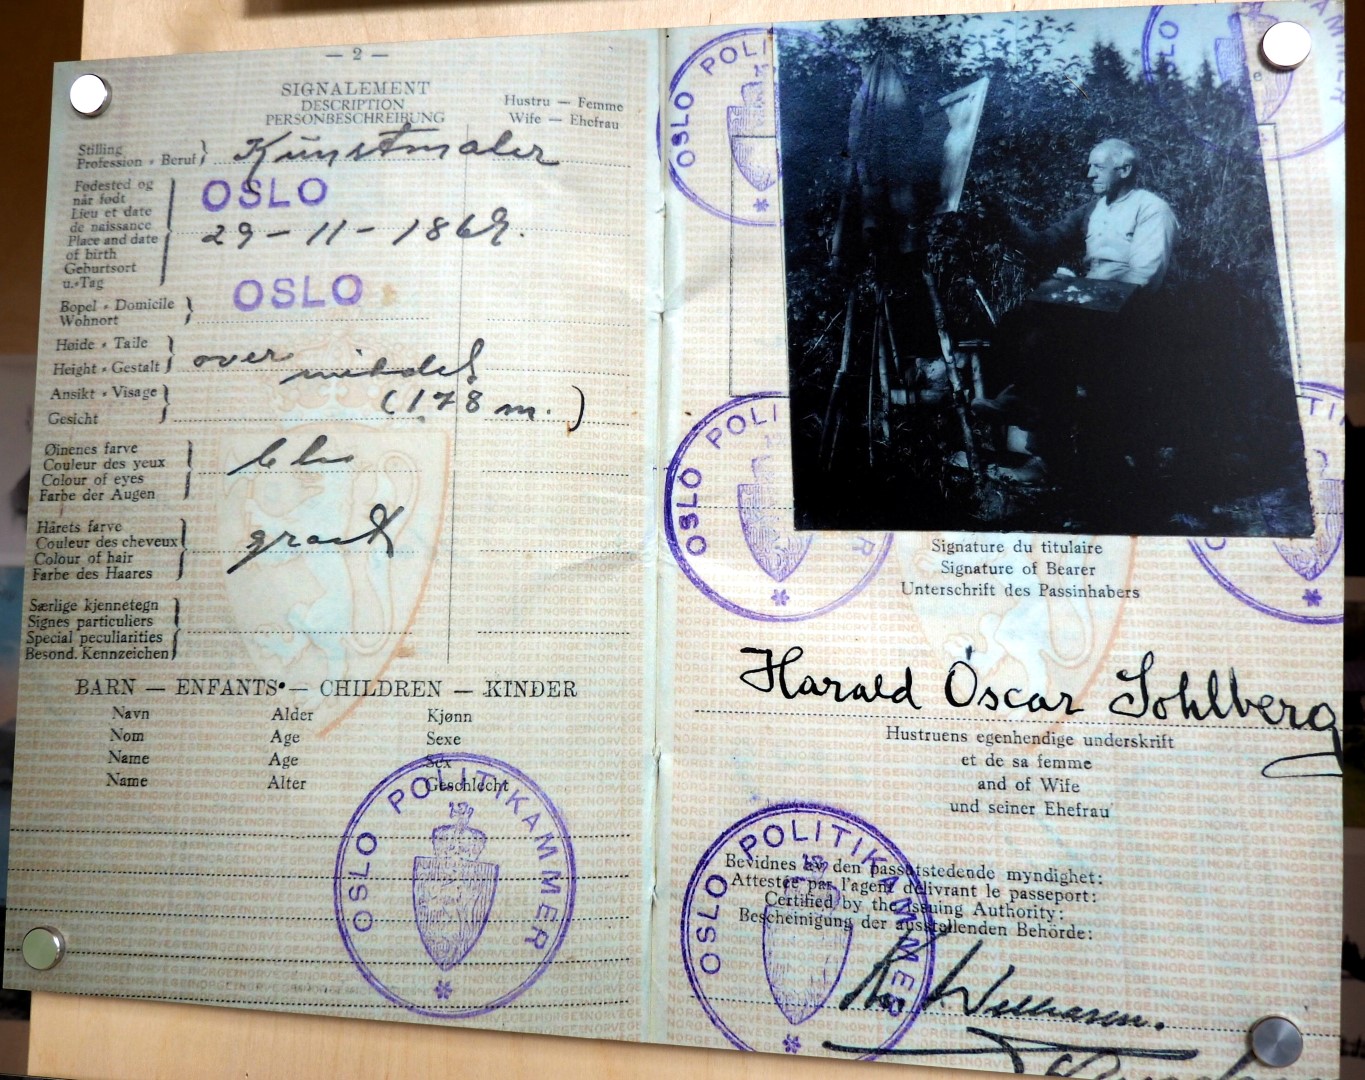 — 2 —
SIGNALEMENT
DESCRIPTION
PERSONBESCHREIBUNG
Hustru — Femme
Wife — Ehefrau
Stilling
Profession • Beruf
Kunstmaler
Fødested og
når født
Lieu et date
de naissance
Place and date
of birth
Geburtsort
u. Tag
OSLO
29-11-1869.
Bopel • Domicile
Wohnort
OSLO
Høide • Taile
Height • Gestalt
over middels
Ansikt • Visage
Gesicht
(178 m.)
Øinenes farve
Couleur des yeux
Colour of eyes
Farbe der Augen
blå
Hårets farve
Couleur des cheveux
Colour of hair
Farbe des Haares
Særlige kjennetegn
Signes particuliers
Special peculiarities
Besond. Kennzeichen
BARN — ENFANTS — CHILDREN — KINDER
Navn Alder Kjønn
Nom Age Sexe
Name Age Sex
Name Alter Geschlecht
OSLO POLITIKAMMER
OSLO POLI
OSLO
MMER
OSLO POLI
R
TI
Signature du titulaire
Signature of Bearer
Unterschrift des Passinhabers
Harald Oscar Sohlberg
Hustruens egenhendige underskrift
et de sa femme
and of Wife
und seiner Ehefrau
Bevidnes av den passutstedende myndighet:
Attestée par l'agent délivrant le passeport:
Certified by the issuing Authority:
Bescheinigung der ausstellenden Behörde:
OSLO POLITIKAMMER